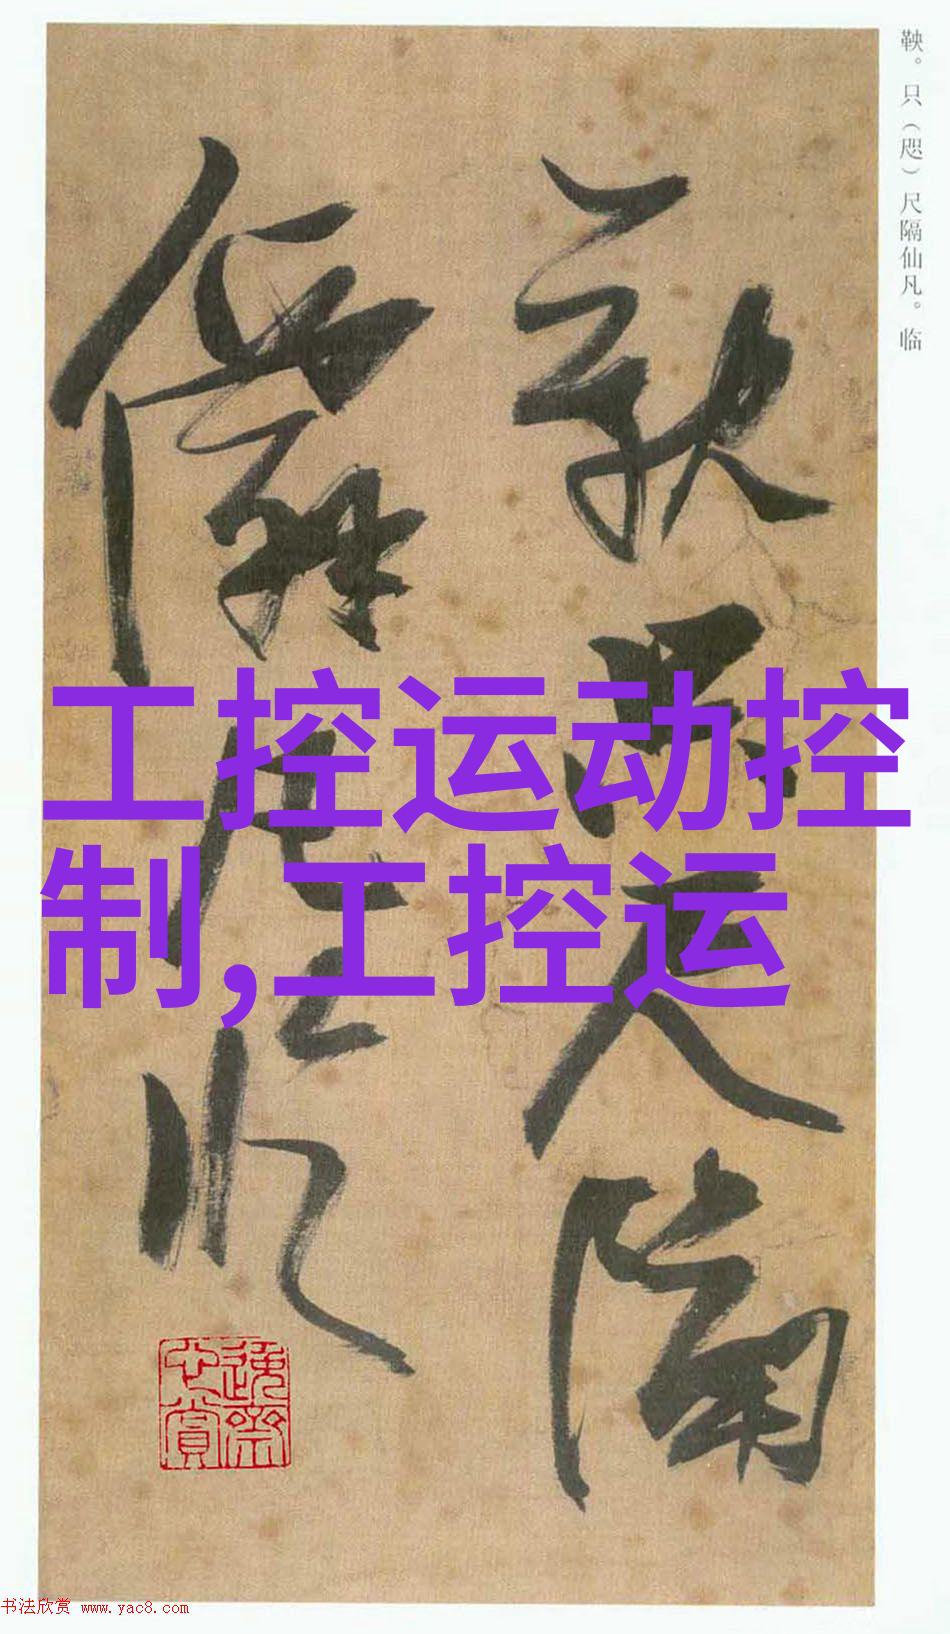 鞅。只（咫）尺隔仙凡。临
鞅只尺隔
仙凡临
工控运动控
制,工控运
书法欣赏 www.yac8.com